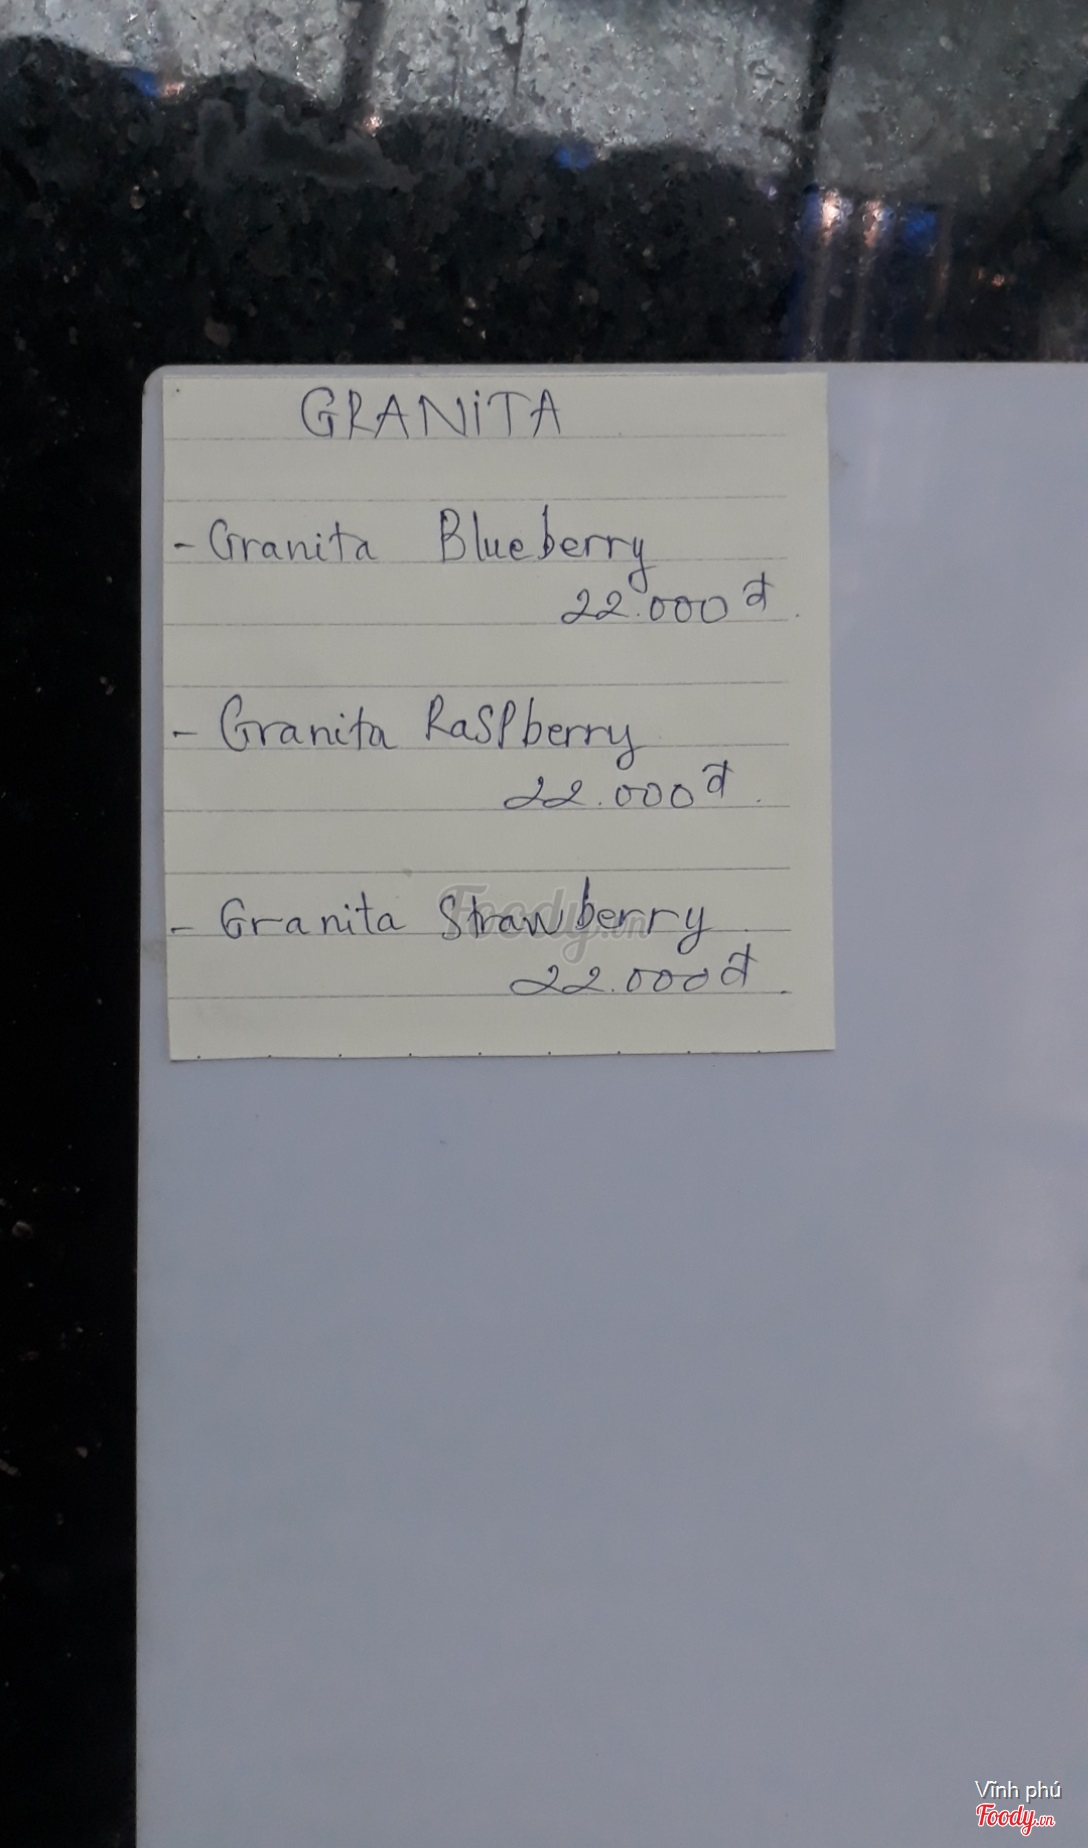 GRANiTA
- Granita Blueberry
22.000 đ.
- Granita RaSPberry
22.000 đ.
- Granita Strawberry
22.000 đ.
Foody.vn
Vĩnh phú
Foody.vn